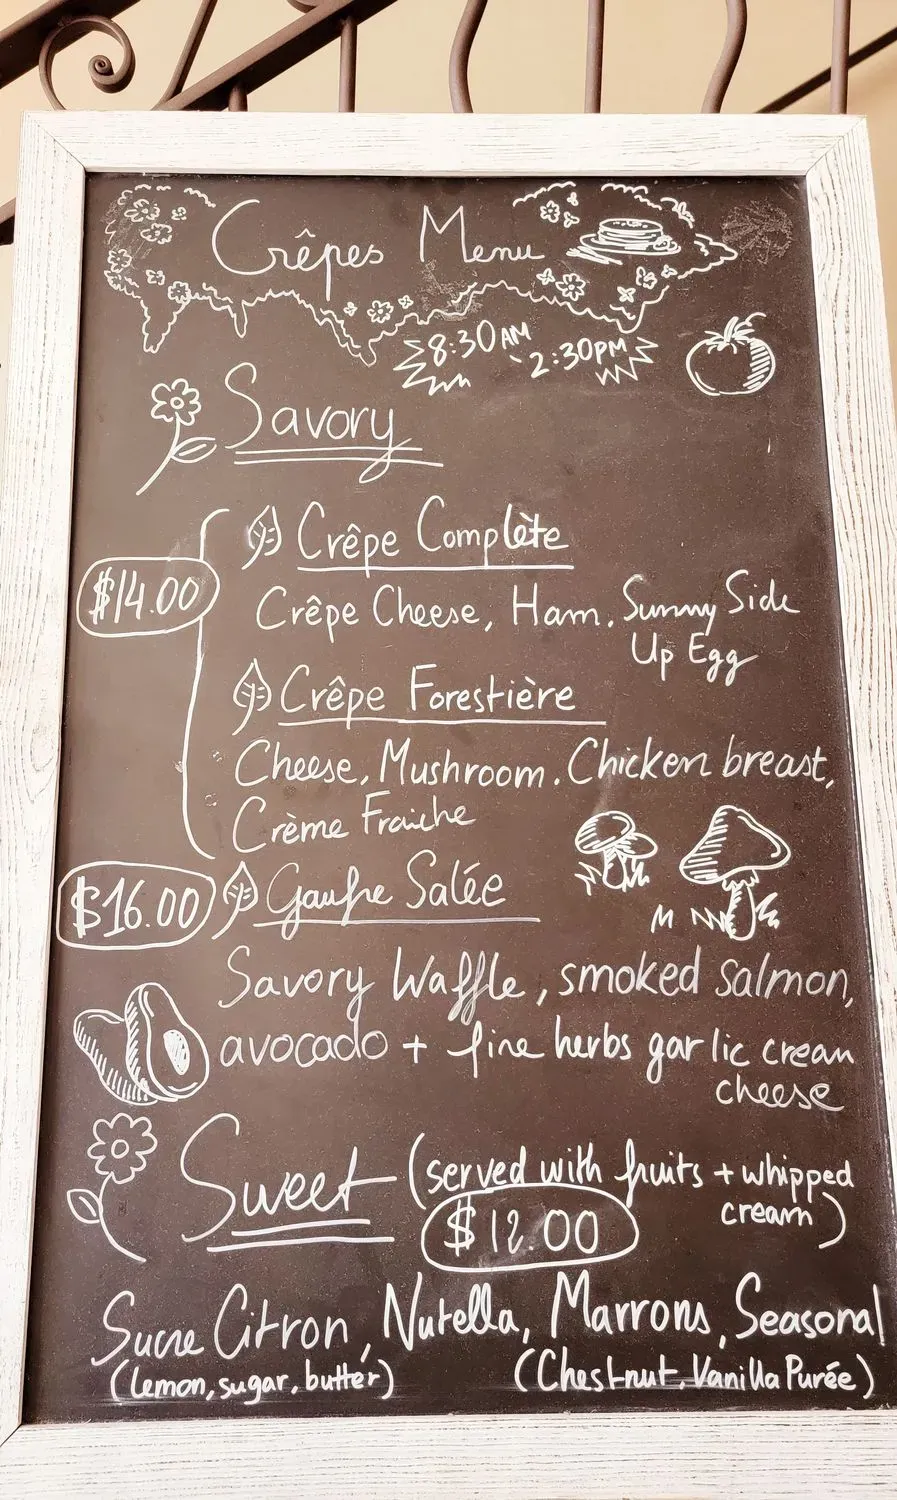 Crêpes Menu
8:30AM - 2:30PM
Savory
Crêpe Complète
$14.00
Crêpe Cheese, Ham. Sunny Side
Up Egg
Crêpe Forestière
Cheese, Mushroom. Chicken breast,
Crème Fraiche
$16.00 Gaufre Salée
Savory Waffle, smoked salmon,
avocado + fine herbs garlic cream
cheese
Sweet (served with fruits + whipped
cream)
$12.00
Sucre Citron, Nutella, Marrons, Seasonal
(lemon, sugar, butter) (Chestnut, Vanilla Purée)